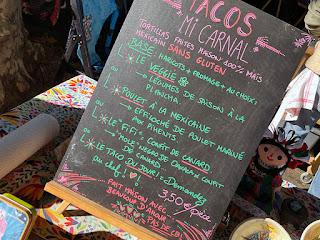 TACOS
MI CARNAL
TORTILLAS FAITES MAISON 100% MAÏS
MEXICAIN SANS GLUTEN
BASE: HARICOTS + FROMAGE + AU CHOIX:
LE VEGGIE
LÉGUMES DE SAISON À LA
PLANCHA
ou
POULET À LA MEXICAINE
EFFILOCHÉ DE POULET MARINÉ
AUX PIMENTS
ou
LE "FIFI": CONFIT DE CANARD
DE CANARD CONFIT
ou
LE TACO DU JOUR: Demandez
au chef!
3,50€/pièce
FAIT MAISON AVEC
BEAUCOUP D'AMOUR
PAS DE CB!